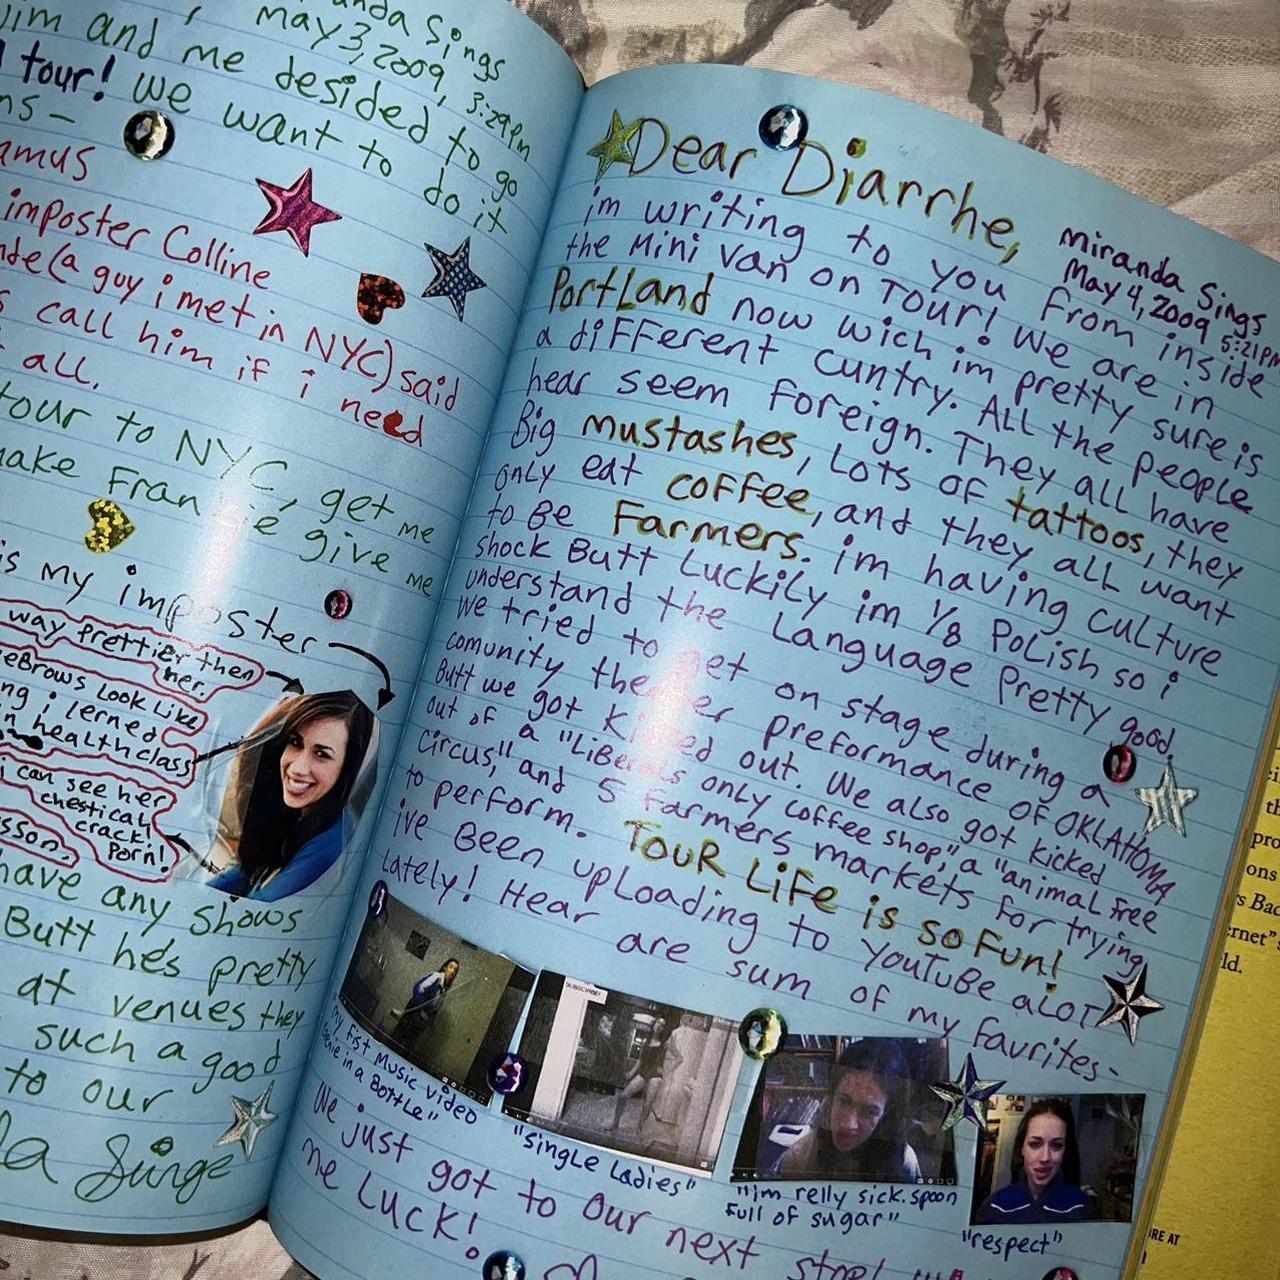 anda Sings
May 3, 2009, 3:29pm
Jim and me desided to go
tour! we want to do it
ns -
amus
imposter Colline
nde (a guy i met in NYC) said
s call him if i need
t all.
tour to NYC, get me
make Frankie give me
is my imposter
way prettier then
her.
eBrows Look Like
ng i lerned
in health class
i can see her
chestical
crack!
Porn!
sson.
have any shows
Butt he's pretty
at venues they
such a good
to our
da Sings
Dear Diarrhe,
Miranda Sings
May 4, 2009 5:21PM
im writing to you from inside
the Mini Van on TOUR! We are in
PortLand now wich im pretty sure is
a different Cuntry. All the people
hear seem foreign. They all have
Big mustashes, Lots of tattoos, they
only eat coffee, and they all want
to Be Farmers. im having culture
shock Butt Luckily im 1/8 Polish so i
understand the Language Pretty good.
We tried to get on stage during a
comunity theater preformance of OKLAHOMA
Butt we got kicked out. We also got kicked
out of a "LiBerals only coffee shop," a "animal free
circus," and 5 farmers markets for trying
to perform. TOUR LiFe is so Fun!
ive Been uploading to YouTuBe aLOT
Lately! Hear are sum of my favrites-
SUBSCRIBE!
my fist Music video
"Genie in a Bottle"
"Single Ladies"
"im relly sick. spoon
full of sugar"
"respect"
We just got to our next stop!
me Luck!
ernet"
ld.